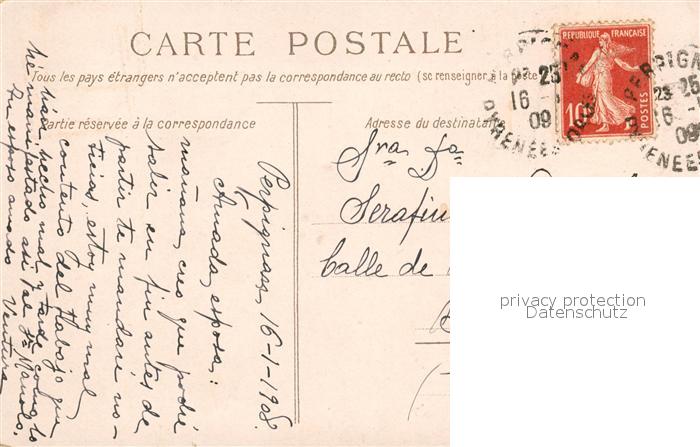 CARTE POSTALE
Tous les pays étrangers n'acceptent pas la correspondance au recto (se renseigner à la poste
Partie réservée à la correspondance
Adresse du destinataire
REPUBLIQUE FRANÇAISE
10
POSTES
PERPIGN
23
25
16
09
PYRENEES
ORIE
Perpignan, 16-1-1908.
Amada esposa:
mañana creo que podré
saber en fin antes de
partir te mandaré no-
ticias, estoy muy mal
contento del trabajo que
han hecho mal y tarde, como lo
he manifestado así al Sr Manolo.
Tu esposo amado Ventura
Sra Da
Serafin
Calle de
privacy protection
Datenschutz